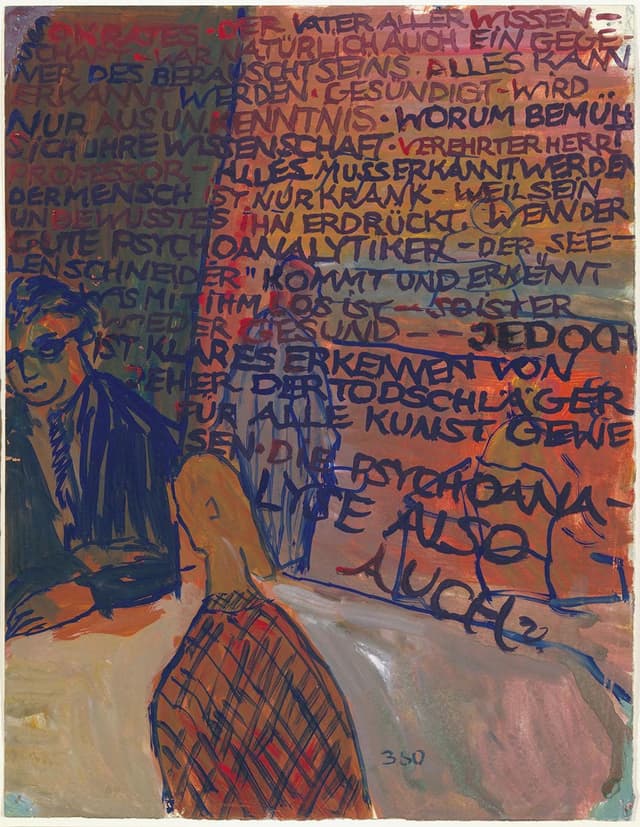 SOKRATES - DER VATER ALLER WISSEN-
SCHAFT - WAR NATÜRLICH AUCH EIN GEG-
NER DES BERAUSCHTSEINS. ALLES KANN
ERKANNT WERDEN. GESÜNDIGT WIRD
NUR AUS UN.KENNTNIS. WORUM BEMÜHT
SICH IHRE WISSENSCHAFT. VEREHRTER HERR
PROFESSOR - ALLES MUSS ERKANNT WERDEN
DER MENSCH IST NUR KRANK - WEIL SEIN
UNBEWUSSTES IHN ERDRÜCKT. WENN DER
GUTE PSYCHOANALYTIKER - DER SEE-
LENSCHNEIDER" KOMMT UND ERKENNT
WAS MIT IHM LOS IST - SO IST ER
WIEDER GESUND - - JEDOCH
IST KLARES ERKENNEN VON
JEHER DER TODSCHLÄGER
FÜR ALLE KUNST GEWE
SEN. DIE PSYCHOANA-
LYSE ALSO
AUCH?
380